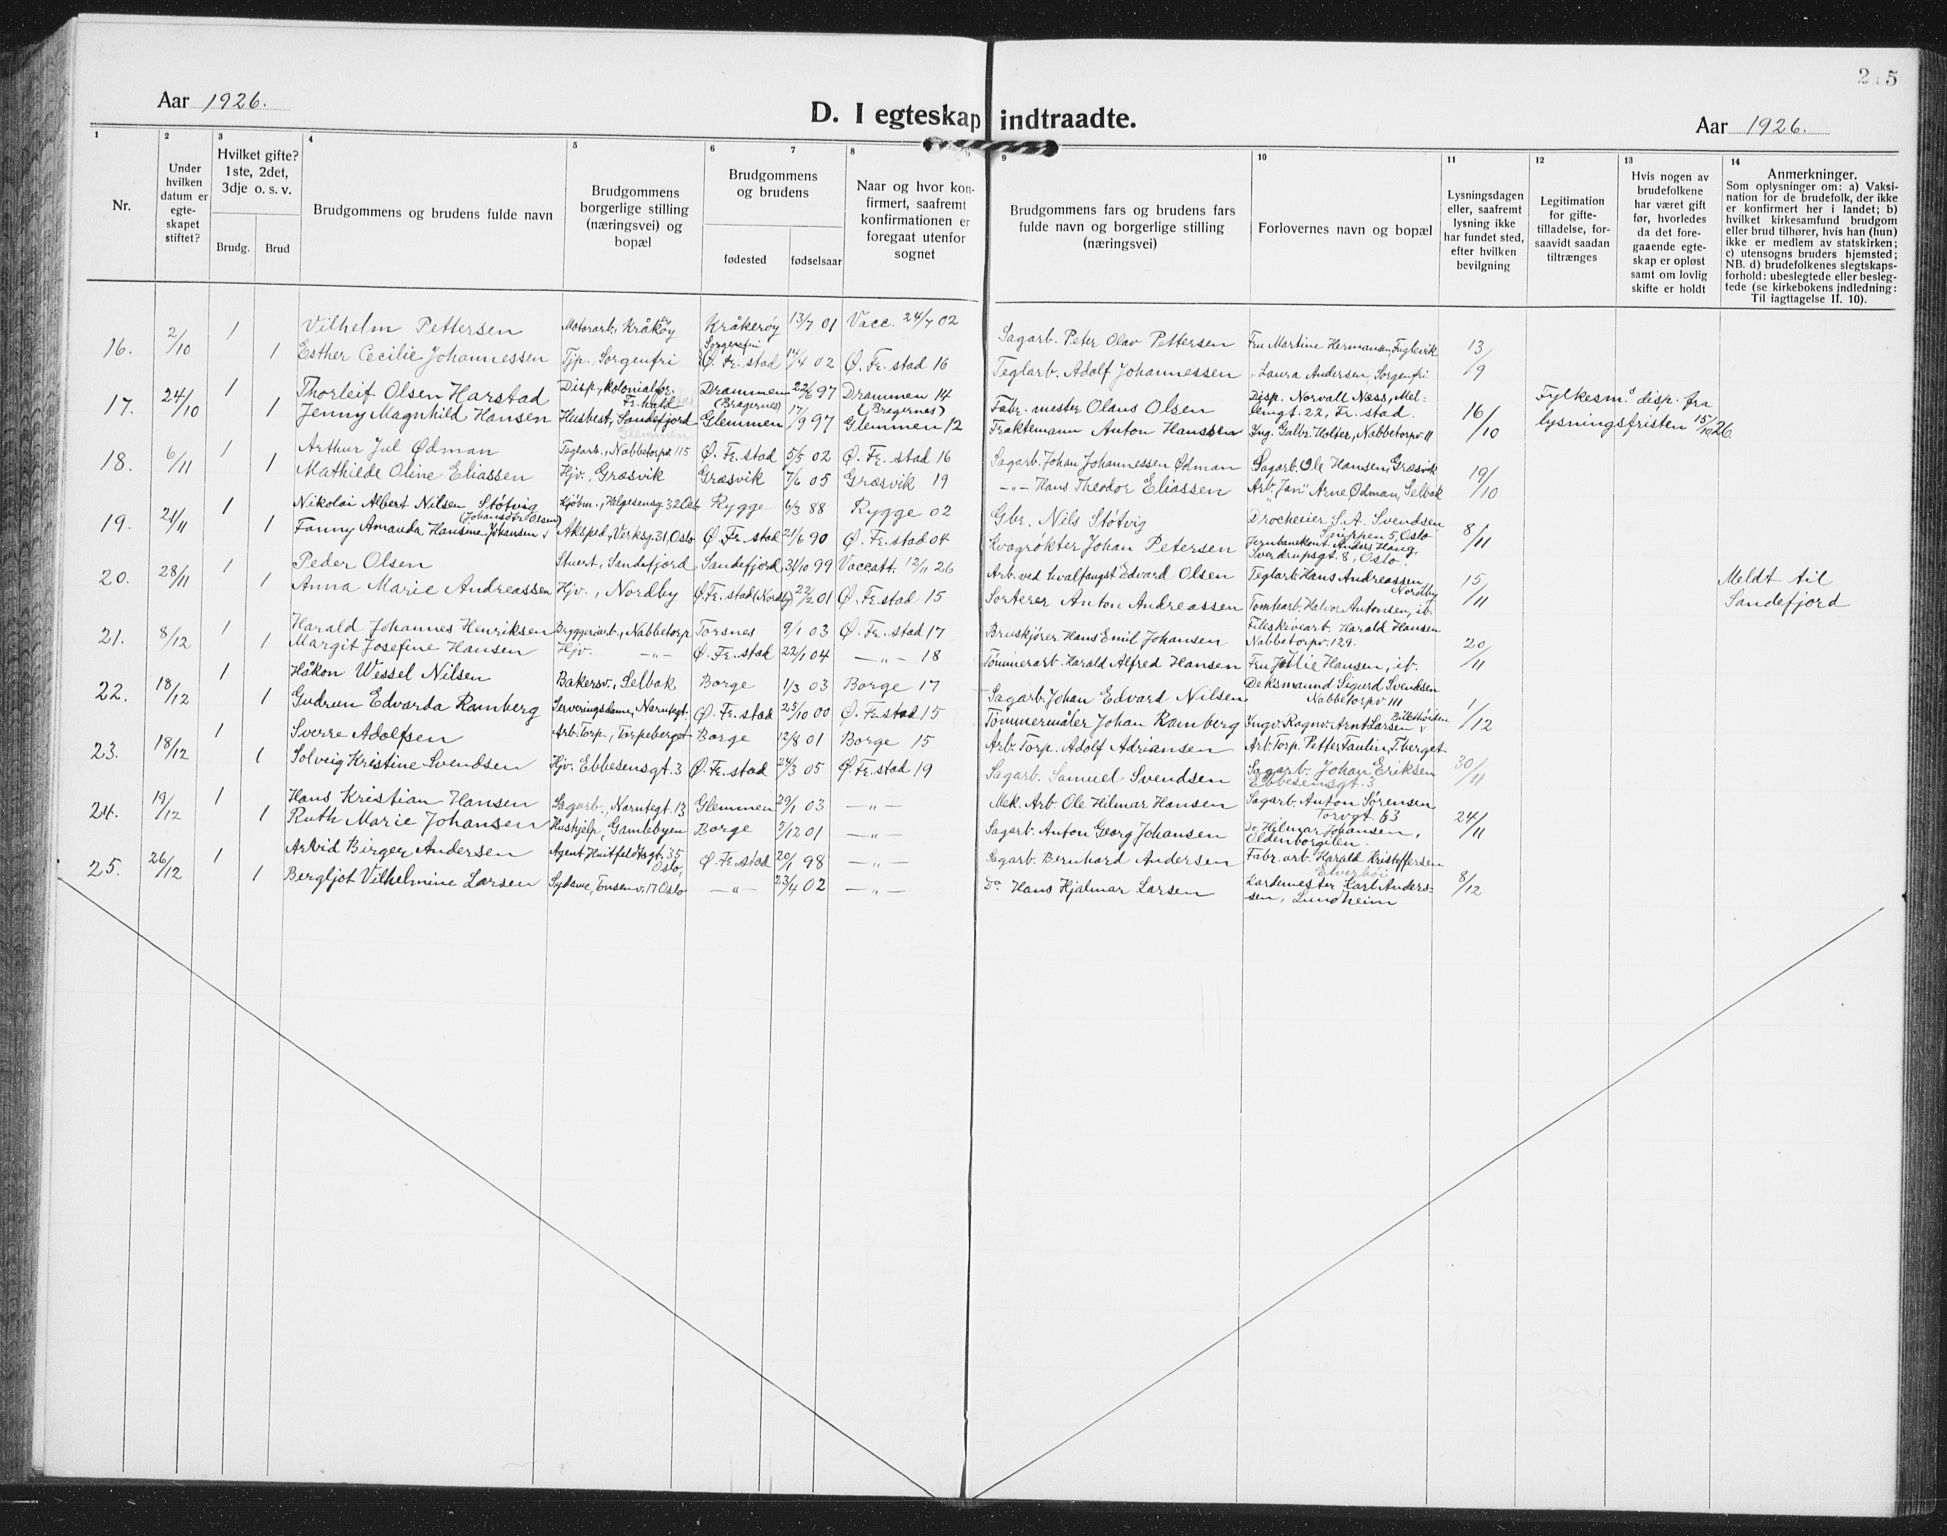 215
Aar 1926.
D. I egteskap indtraadte.
Aar 1926.
1 2 3 4 5 6 7 8 9 10 11 12 13 14
Nr.
Under hvilken datum er egte- skapet stiftet?
Hvilket gifte? 1ste, 2det, 3dje o. s. v.
Brudg. Brud
Brudgommens og brudens fulde navn
Brudgommens borgerlige stilling (næringsvei) og bopæl
Brudgommens og brudens
fødested fødselsaar
Naar og hvor kon- firmert, saafremt konfirmationen er foregaat utenfor sognet
Brudgommens fars og brudens fars fulde navn og borgerlige stilling (næringsvei)
Forlovernes navn og bopæl
Lysningsdagen eller, saafremt lysning ikke har fundet sted, efter hvilken bevilgning
Legitimation for gifte- tilladelse, for- saavidt saadan tiltrænges
Hvis nogen av brudefolkene har været gift før, hvorledes da det fore- gaaende egte- skap er opløst samt om lovlig skifte er holdt
Anmerkninger.
Som oplysninger om: a) Vaksi- nation for de brudefolk, der ikke er konfirmert her i landet; b) hvilket kirkesamfund brudgom eller brud tilhører, hvis han (hun) ikke er medlem av statskirken; c) utensogns bruders hjemsted; NB. d) brudefolkenes slegtskaps- forhold: ubeslegtede eller besleg- tede (se kirkebokens indledning: Til iagttagelse II. 10).
16. 2/10 1 Vilhelm Pettersen Motorarb., Kråkøy Kråkerøy 13/7 01 Vacc. 24/7 02 Sagarb. Peter Olav Pettersen Fru Martine Hermansen, Fuglevik 13/9
1 Esther Cecilie Johannessen Tjp. Sorgenfri Sorgenfri Ø. Fr. stad 14/4 02 Ø. Fr. stad 16 Teglarb. Adolf Johannessen " Laura Andersen, Sorgenfri
17. 24/10 1 Thorleif Olsen Harstad Disp., kolonialfor. Fr.hald Drammen (Bragernes) 22/6 97 Drammen 14 (Bragernes) Fabr. mester Olaus Olsen Disp. Norvall Næss, Mellemgt. 22, Fr. stad. 16/10 Fylkesm.s disp. fra lysningsfristen 15/10 26.
1 Jenny Magnhild Hansen Husbest., Sandefjord Glemmen Glemmen 17/9 97 Glemmen 12 Fraktemann Anton Hanssen Ing. Galbr. Holter, Nabbetorpv. 11
18. 6/11 1 Arthur Jul Ødman Teglarb., Nabbetorpv. 115 Ø. Fr. stad 5/5 02 Ø. Fr. stad 16 Sagarb. Johan Johannessen Ødman Sagarb. Ole Hansen, Græsvik 19/10
1 Mathilde Oline Eliassen Hjv. Græsvik Græsvik 7/6 05 Græsvik 19 —"— Hans Theodor Eliassen Arb. Arne Ødman, Selbak
19. 21/11 1 Nikolai Albert Nilsen Støtvig Kjøbm., Helgesensg. 32 Oslo Rygge 6/3 88 Rygge 02 Gbr. Nils Støtvig Drocheeier S. A. Svendsen 5, Oslo 8/11
1 Fanny Amanda Hansine Johansen Aksped., Verksg. 31, Oslo Ø. Fr. stad 21/6 90 Ø. Fr. stad 04 Kvagrøkter Johan Petersen Jernbanekont. Anders Haug, Sverdrupsgt. 8, Oslo.
20. 28/11 1 Peder Olsen Stuert, Sandefjord Sandefjord 31/10 99 Vaccatt. 12/11 26 Arb. ved hvalfangst Edvard Olsen Teglarb. Hans Andreassen Nordby 15/11 Meldt til Sandefjord
1 Anna Marie Andreassen Hjv., Nordby Ø. Fr. stad (Nordby) 22/2 01 Ø. Fr. stad 15 Sorterer Anton Andreassen Tomtearb. Halvor Antonsen, ib.
21. 8/12 1 Harald Johannes Henriksen Bryggeriarb., Nabbetorp Torsnes 9/1 03 Ø. Fr. stad 17 Bruskjører Hans Emil Johansen Fileskivearb. Harald Hansen Nabbetorpv. 129. 20/11
1 Margit Josefine Hansen Hjv. —"— Ø. Fr. stad 22/1 04 —"— 18 Tømmerarb. Harald Alfred Hansen Fru Julie Hansen, ib.
22. 18/12 1 Håkon Wessel Nilsen Bakersv., Selbak Borge 1/3 03 Borge 17 Sagarb. Johan Edvard Nilsen Deksmannd Sigurd Svendsen Nabbetorpv 111 1/12
1 Gudrun Edvarda Ramberg Serveringsdame, Narntegt. Ø. Fr. stad 25/10 00 Ø. Fr. stad 15 Tømmermåler Johan Ramberg Ingv. Ragnv. Arnt Larsen
23. 18/12 1 Sverre Adolfsen Arb. Torp., Torpeberget Borge 12/8 01 Borge 15 Arb. Torp. Adolf Adriansen Arb. Torp. Petter Paulin, T.berget 30/11
1 Solveig Kristine Svendsen Hjv. Ebbesensgt. 3 Ø. Fr. stad 24/3 05 Ø. Fr. stad 19 Sagarb. Samuel Svendsen Sagarb. Johan Eriksen Ebbesensgt. 3
24. 19/12 1 Hans Kristian Hansen Sagarb., Narntegt. 13 Glemmen 29/1 03 —"— Mek. Arb. Ole Hilmar Hansen Sagarb. Anton Sørensen Torvgt. 63 24/11
1 Ruth Marie Johansen Hushjelp, Gamlebyen Borge 7/12 01 —"— Sagarb. Anton Georg Johansen Do. Hilmar Johansen,
25. 26/12 1 Arvid Birger Andersen Agent Huitfeldtsgt. 35 Oslo, Ø. Fr. stad 20/1 98 —"— Sagarb. Bernhard Andersen Fabr. arb. Harald Kristoffersen Elverhøi 8/12
1 Bergljot Vilhelmine Larsen Sydame, Tonsenv. 17 Oslo —"— 23/4 02 —"— Do. Hans Hjalmar Larsen Kardemester Karl Anderssen, Lundheim